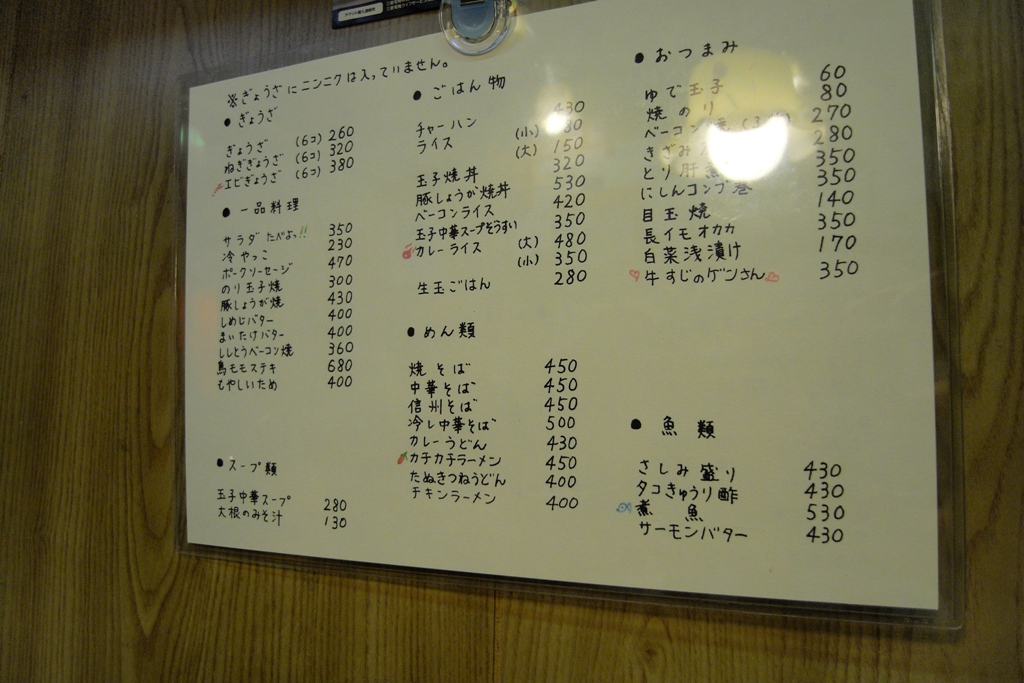 ※ぎょうざにニンニクは入っていません。
● ぎょうざ
ぎょうざ (6コ) 260
ねぎぎょうざ (6コ) 320
エビぎょうざ (6コ) 380
● 一品料理
サラダたべよっ!! 350
冷やっこ 230
ポークソーセージ 470
のり玉子焼 300
豚しょうが焼 430
しめじバター 400
まいたけバター 400
ししとうベーコン焼 360
鳥モモステキ 680
もやしいため 400
● スープ類
玉子中華スープ 280
大根のみそ汁 130
● ごはん物
チャーハン 430
ライス (小)
(大) 150
玉子焼丼 320
豚しょうが焼丼 530
ベーコンライス 420
玉子中華スープぞうすい 350
カレーライス (大) 480
(小) 350
生玉ごはん 280
● めん類
焼そば 450
中華そば 450
信州そば 450
冷し中華そば 500
カレーうどん 430
カチカチラーメン 450
たぬきつねうどん 400
チキンラーメン 400
● おつまみ
ゆで玉子 60
焼のり 80
ベーコン 270
きざみ 280
とり肝煮 350
にしんコンブ巻 350
目玉焼 140
長イモオカカ 350
白菜浅漬け 170
牛すじのゲンさん 350
● 魚類
さしみ盛り 430
タコきゅうり酢 430
煮魚 530
サーモンバター 430